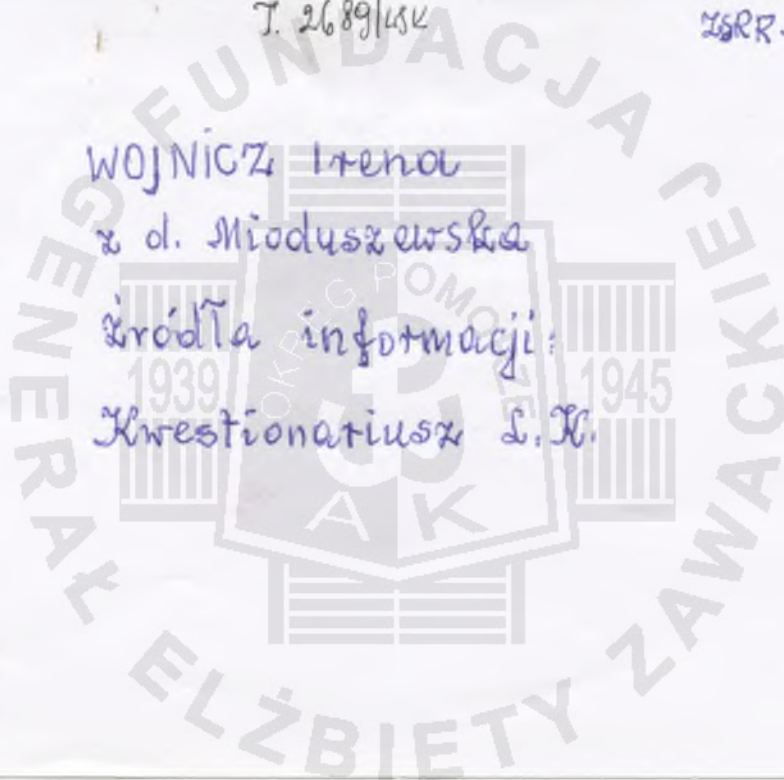 T. 2689/WSK
ZSRR.
WOJNICZ Irena
z d. Mioduszewska
źródła informacji:
Kwestionariusz Ł.K.
FUNDACJA JENERAŁ ELŻBIETY ZAWACKIEJ
OKRĘG POMORZE
1939
1945
AK